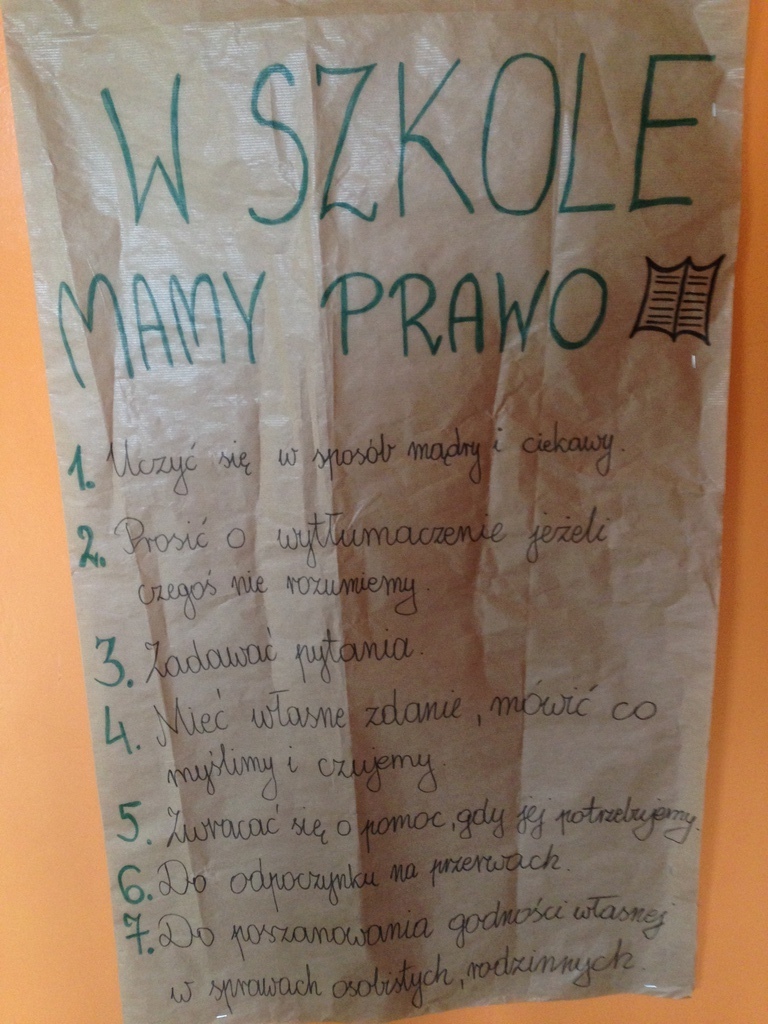 W SZKOLE
MAMY PRAWO
1. Uczyć się w sposób mądry i ciekawy.
2. Prosić o wytłumaczenie jeżeli
czegoś nie rozumiemy.
3. Zadawać pytania.
4. Mieć własne zdanie, mówić co
myślimy i czujemy.
5. Zwracać się o pomoc, gdy jej potrzebujemy.
6. Do odpoczynku na przerwach.
7. Do poszanowania godności własnej
w sprawach osobistych, rodzinnych.